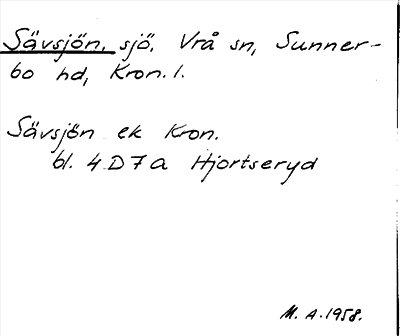 Sävsjön, sjö, Vrå sn, Sunner-
bo hd, Kron. l.
Sävsjön ek Kron.
bl. 4D7a Hjortseryd
M. A. 1958.